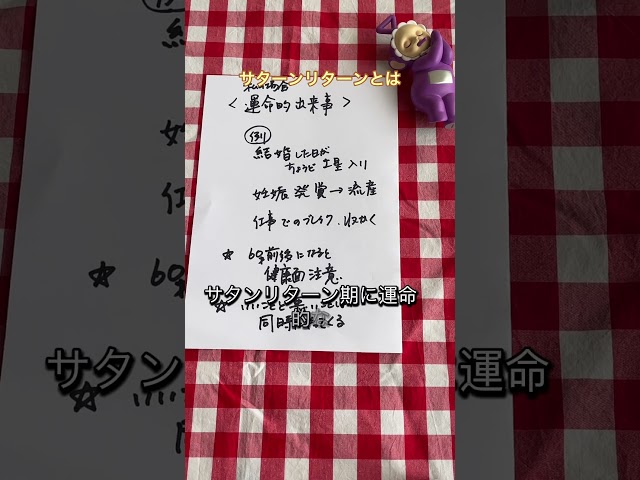 サターンリターンとは
私の場合
<運命的出来事>
例
結婚した日が
ちょうど土星入り
妊娠発覚→流産
仕事でのブレイク、収入
☆ 60才前後になると
健康面注意、
サタンリターン期に運命
的な
☆ いいことと悪いことは
同時にくる
サタンリターン期に運命